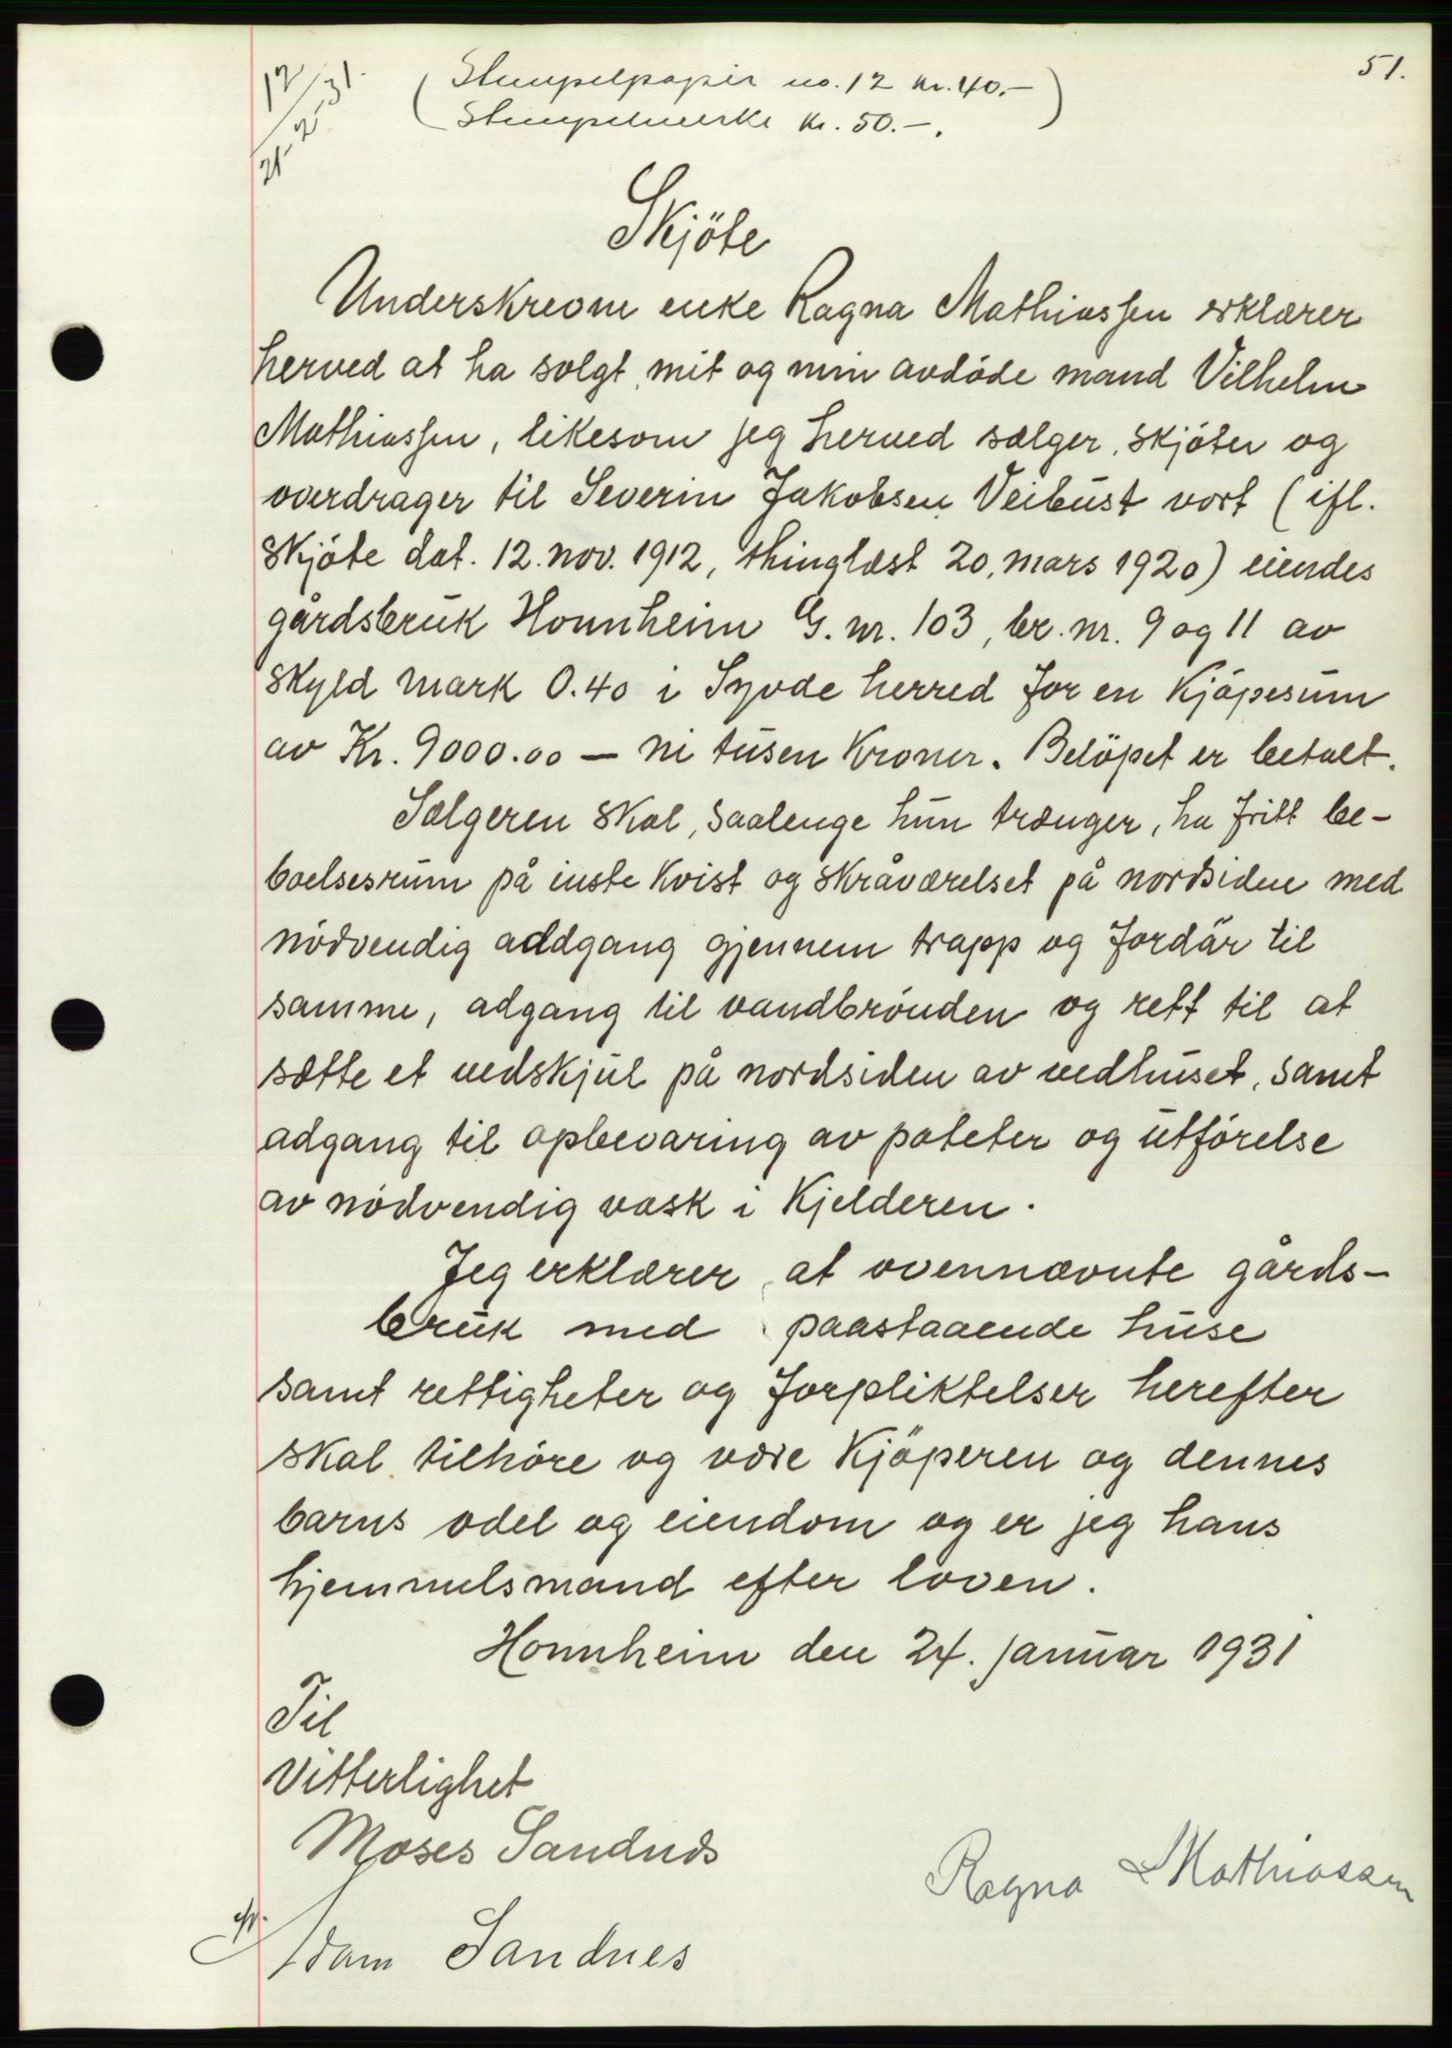 51.
12/21-2-31.
(Stempelpapir no. 12 kr. 40.-)
(Stempelmerke kr. 50.-.
Skjöte
Underskrevne enke Ragna Mathiassen erklærer
herved at ha solgt mit og min avdöde mand Vilhelm
Mathiassen, likesom jeg herved sælger, skjöter og
overdrager til Severin Jakobsen Veibust vort (ifl.
Skjöte dat. 12. nov. 1912, thinglæst 20. mars 1920) eiendes
gårdsbruk Honnheim G. nr. 103, br. nr. 9 og 11 av
skyld mark 0.40 i Syvde herred for en kjöpesum
av Kr. 9000.00 — ni tusen kroner. Belöpet er betalt.
Sælgeren skal, saalenge hun trænger, ha fritt be-
boelsesrum på inste kvist og skråværelset på nordsiden med
nödvendig addgang gjennem trapp og fordør til
samme, adgang til vandbrönden og rett til at
sætte et vedskjul på nordsiden av vedhuset, samt
adgang til opbevaring av poteter og utförelse
av nödvendig vask i kjelderen.
Jeg erklærer, at ovennævnte gårds-
bruk med paastaaende huse
samt rettigheter og forpliktelser herefter
skal tilhöre og være kjöperen og dennes
barns odel og eiendom og er jeg hans
hjemmelsmand efter loven.
Honnheim den 24. januar 1931
Til
Vitterlighet
Moses Sandnes
Ragna Mathiassen
Adam Sandnes